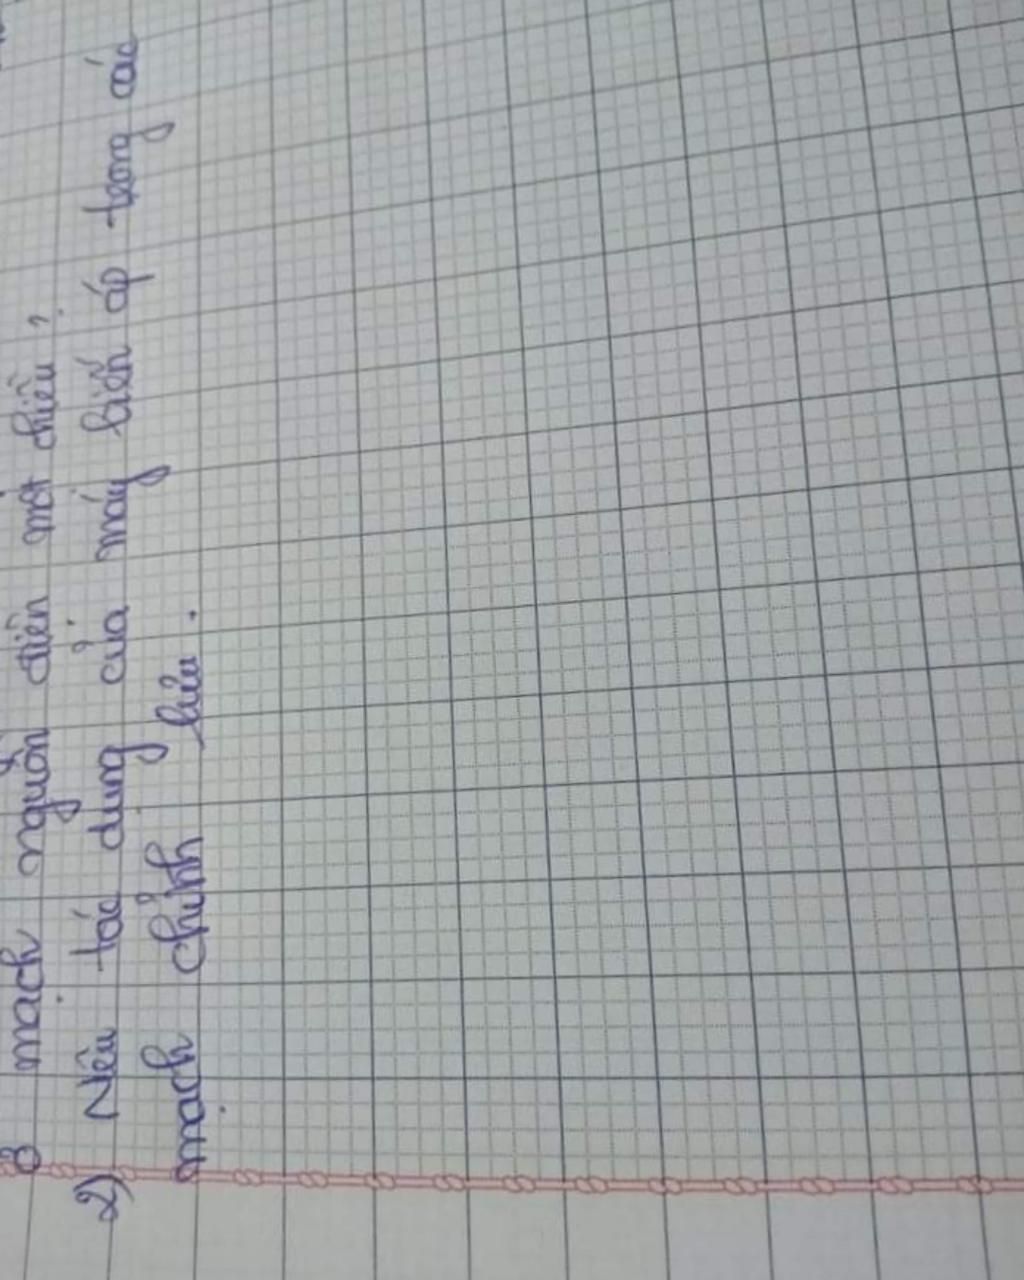 ở mạch nguồn điện một chiều ?
2) Nêu tác dụng của máy biến áp trong các
mạch chỉnh lưu .